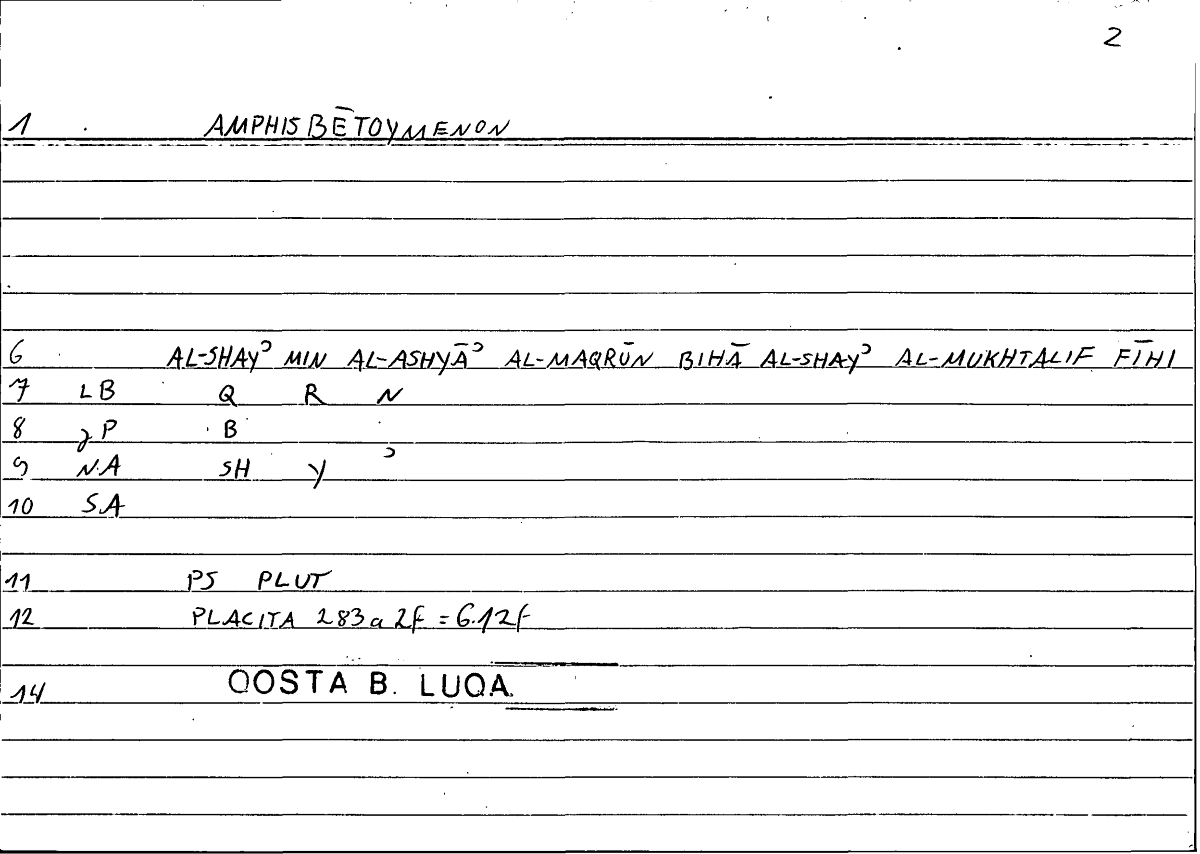 2
1 AMPHISBĒTOYMENON
6 AL-SHAYʾ MIN AL-ASHYĀʾ AL-MAQRŪN BIHĀ AL-SHAYʾ AL-MUKHTALIF FĪHI
7 LB Q R N
8 P B
9 NA SH Y ʾ
10 SA
11 PS PLUT
12 PLACITA 283a 2f = 6.12f
14 QOSTA B. LUQA.